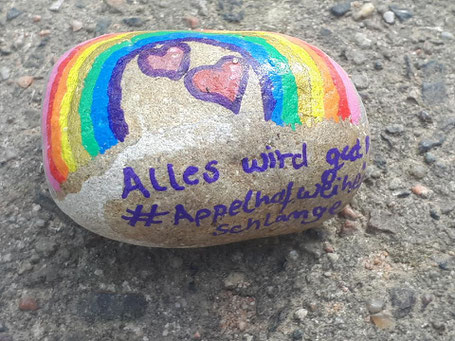 Alles wird gut!
#Appelhofweiher
schlange